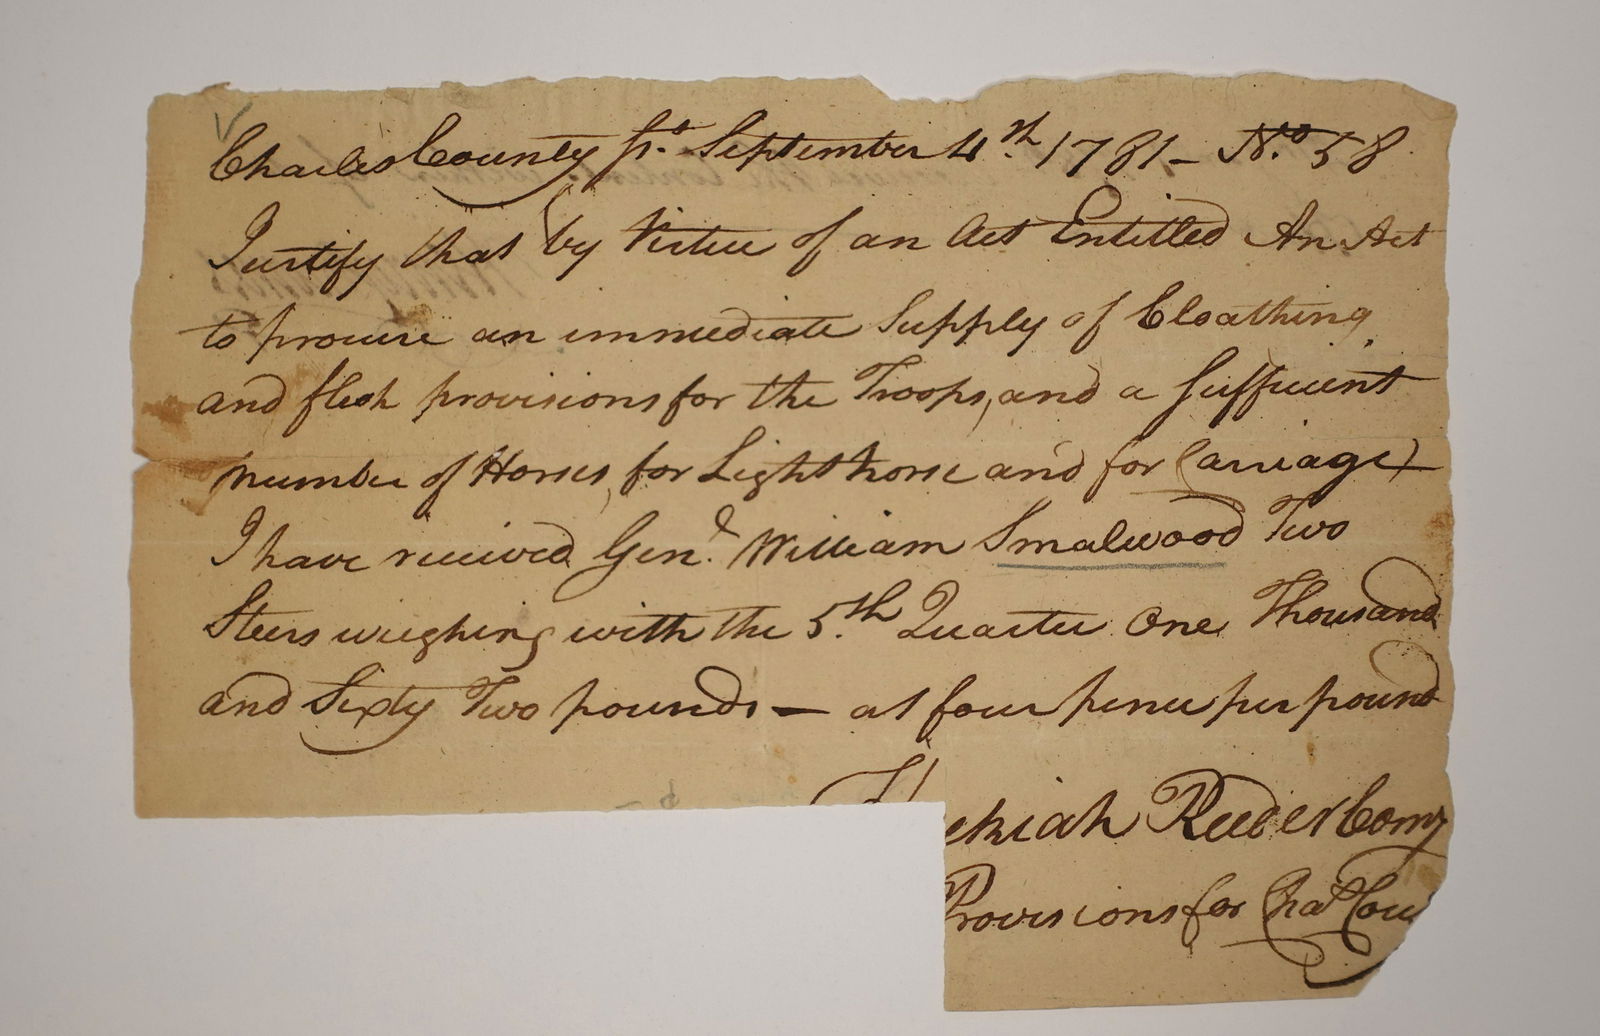 Charles County Ss. September 4th. 1781 – No. 58
I certify that by Virtue of an Act Entitled An Act
to procure an immediate Supply of Cloathing
and flesh provisions for the Troops, and a Sufficient
number of Horses, for Light horse and for Carriage)
I have received Genl. William Smalwood Two
Steers weighing with the 5.th Quarter One Thousand
and Sixty Two pounds — at four pence per pound
ekiah Reeder Comy
Provisions for Chas Cou